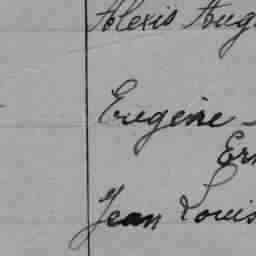 Alexis Aug
Eugène
Ern
Jean Louis